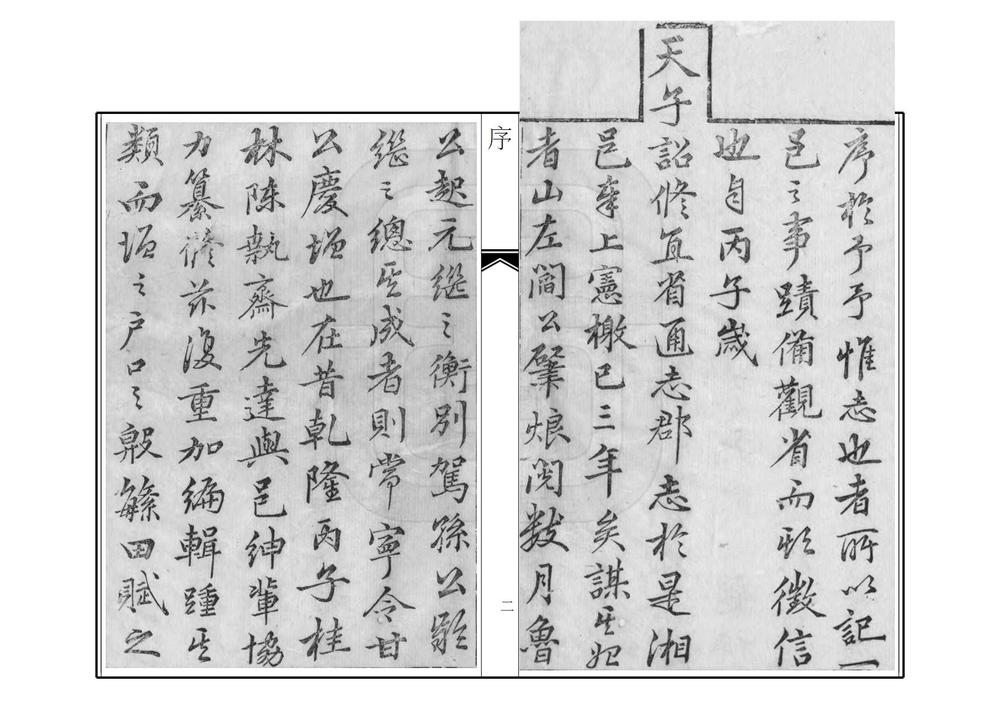 序於予予惟志也者所以記一
邑之事蹟備觀省而徵信
也自丙子歲
天子
詔修直省通志郡志於是湘
邑奉上憲檄已三年矣謀其始
者山左閻公肇烺閱數月魯
序
二
公起元繼之衡別駕孫公
繼之總其成者則常寧令甘
公慶增也在昔乾隆丙子桂
林陳執齋先達與邑紳輩協
力纂修茲復重加編輯踵其
類而增之户口之殷繁田賦之